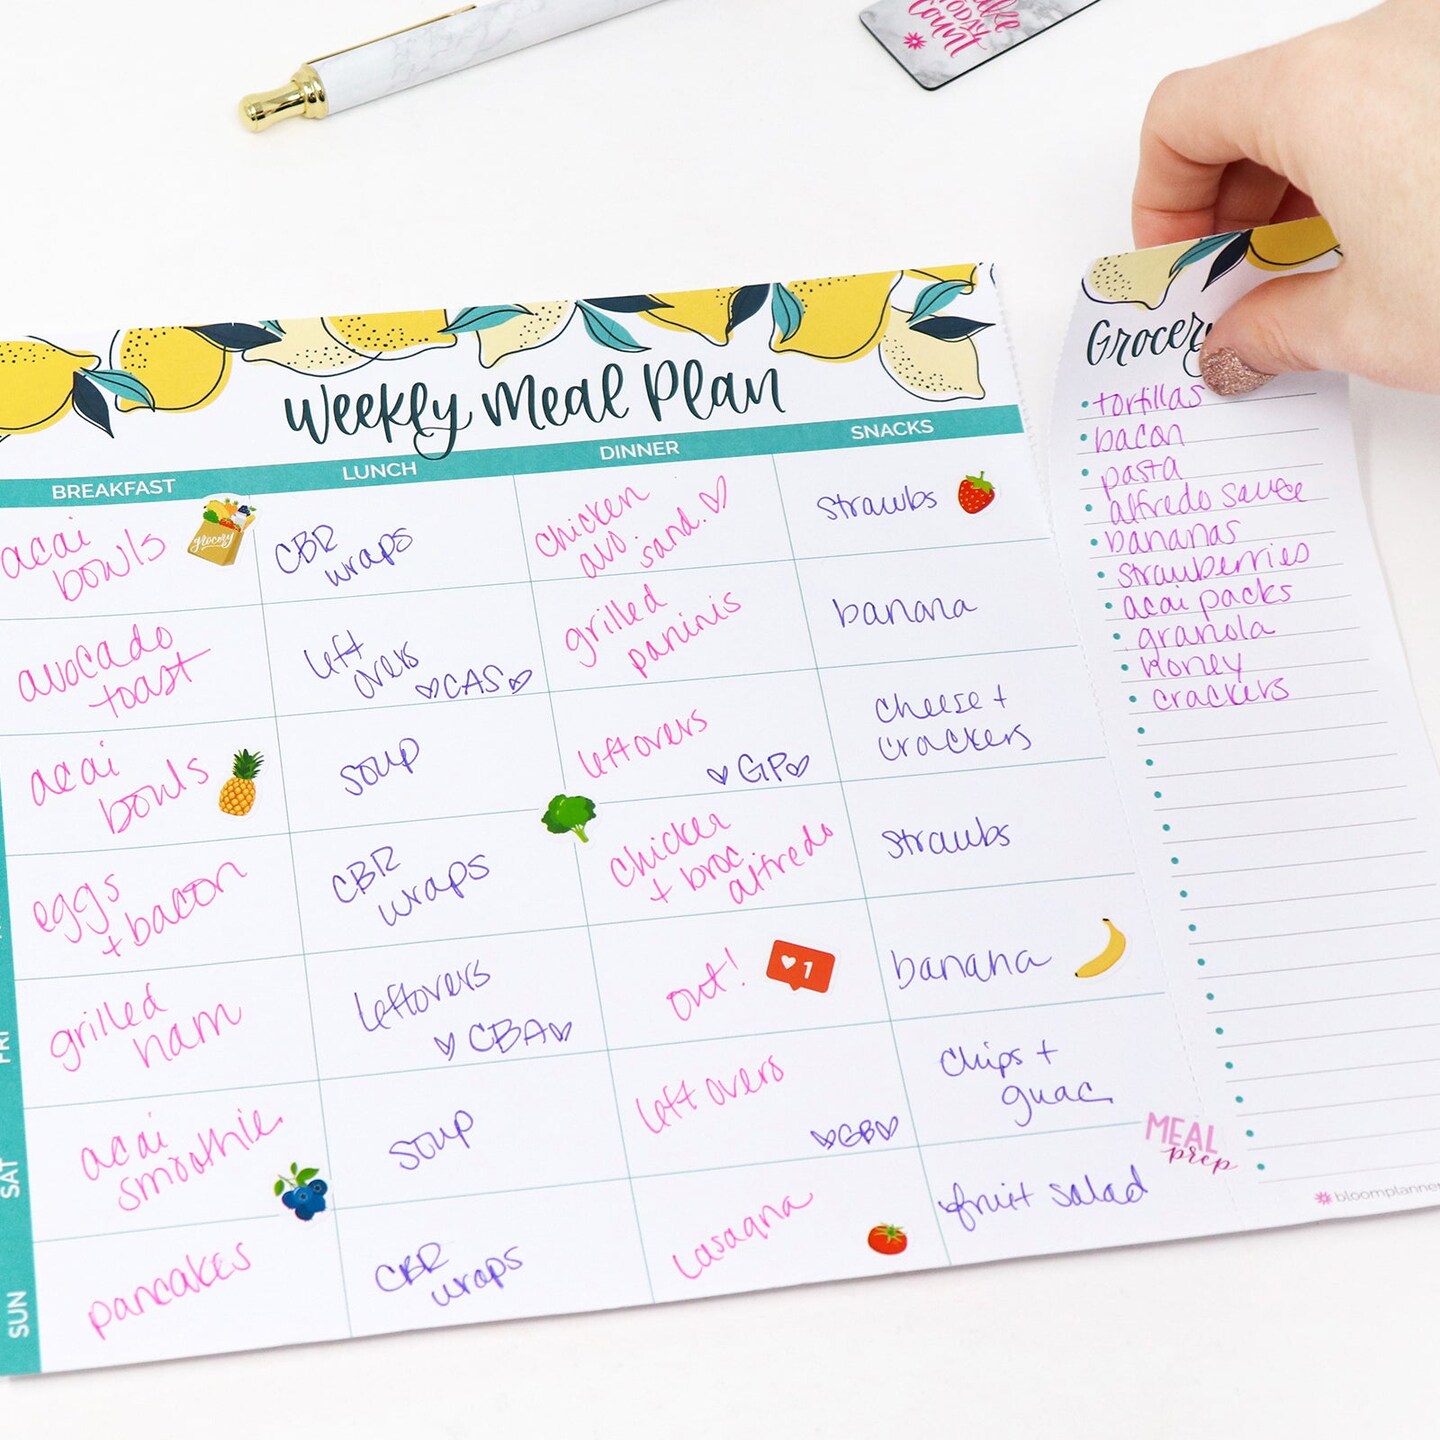 make
TODAY
Count
Weekly Meal Plan
BREAKFAST
LUNCH
DINNER
SNACKS
acai
bowls
grocery
CBR
wraps
chicken
avo
sand.
strawbs
avocado
toast
left
overs
CAS
grilled
paninis
banana
acai
bowls
soup
leftovers
GP
cheese +
crackers
eggs
+ bacon
CBR
wraps
chicken
+ broc
alfredo
strawbs
FRI
grilled
ham
leftovers
CBA
out!
1
banana
SAT
acai
smoothie
soup
leftovers
GB
chips +
guac
SUN
pancakes
CBR
wraps
lasagna
fruit salad
MEAL
prep
Grocery
tortillas
bacon
pasta
alfredo sauce
bananas
strawberries
acai packs
granola
honey
crackers
bloomplanner